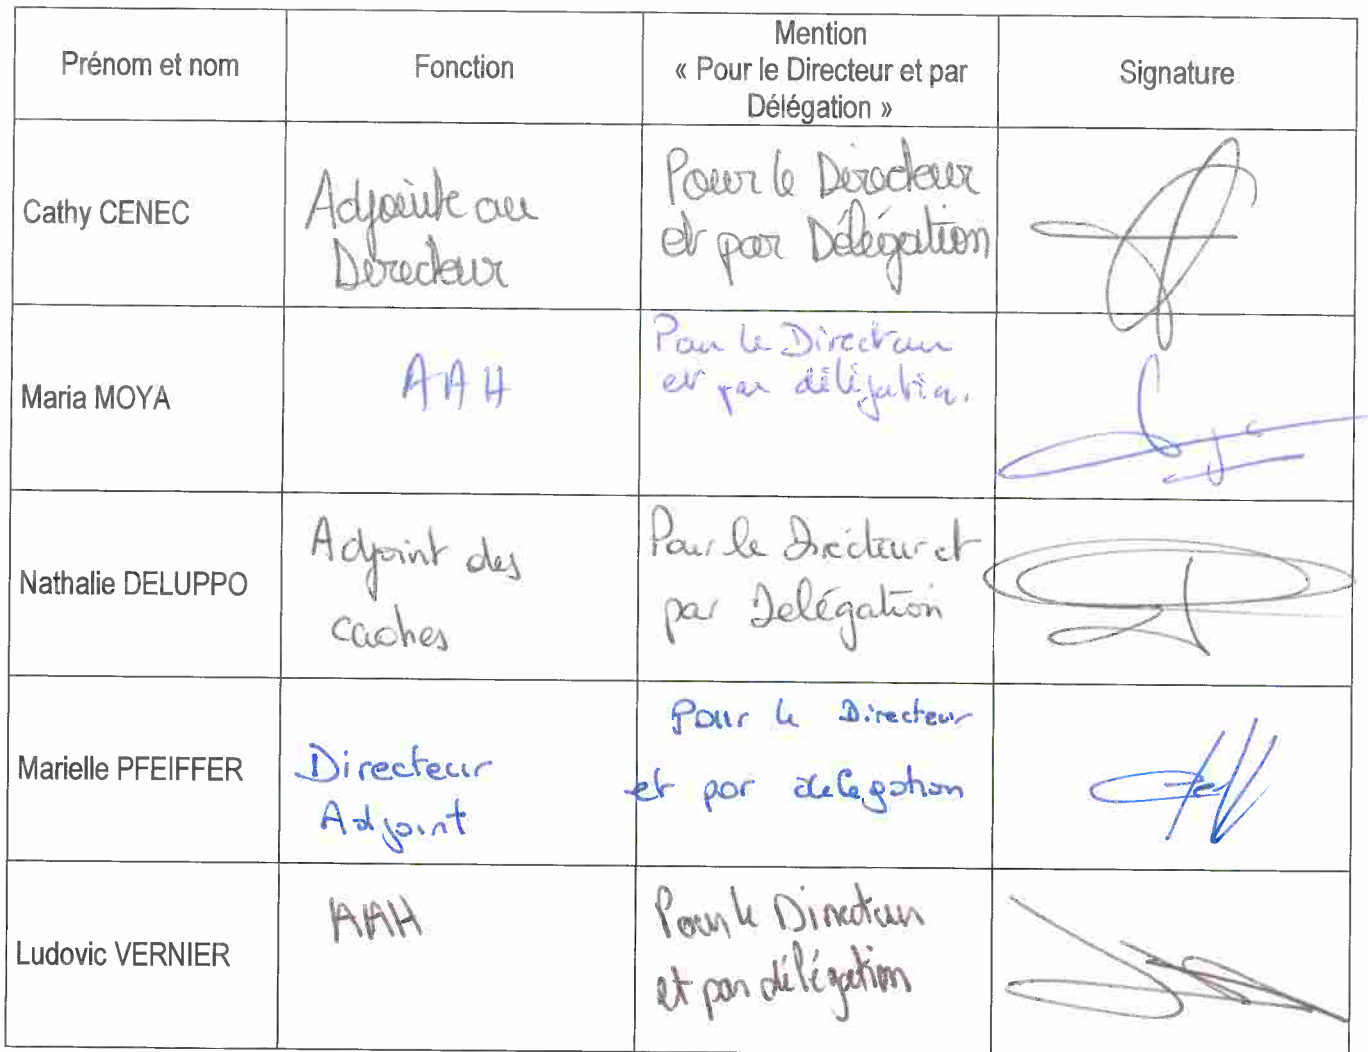 Prénom et nom
Fonction
Mention
« Pour le Directeur et par
Délégation »
Signature
Cathy CENEC
Adjointe au
Directeur
Pour le Directeur
et par Délégation
Maria MOYA
AAH
Pour le Directeur
et par délégation.
Nathalie DELUPPO
Adjoint des
cadres
Pour le Directeur et
par Delégation
Marielle PFEIFFER
Directeur
Adjoint
Pour le Directeur
et par delegation
Ludovic VERNIER
AAH
Pour le Directeur
et par délégation